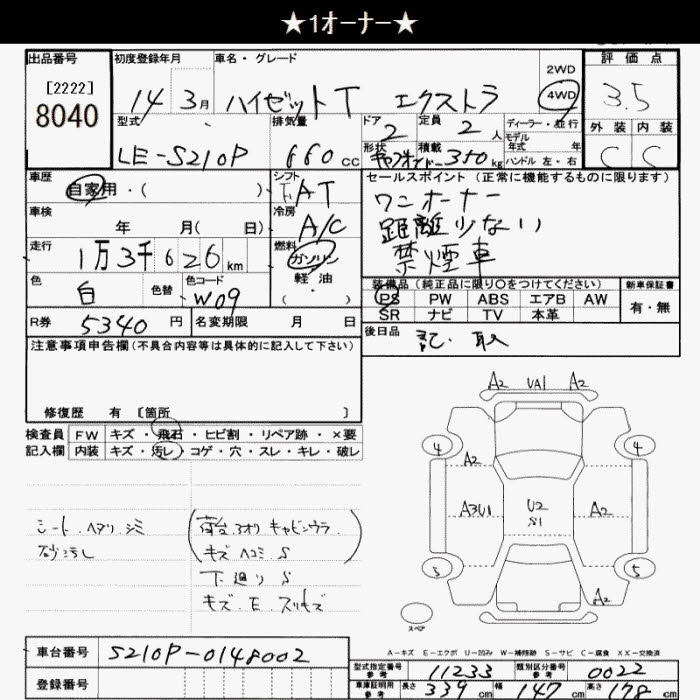 ★1オーナー★
出品番号
[2222]
8040
初度登録年月
14年3月
車名・グレード
ハイゼットT エクストラ
2WD
4WD
評価点
3.5
外装 内装
C C
型式
LE-S210P
排気量
660cc
ドア
2
定員
2人
形状
積載
350kg
ディーラー・並行
モデル
年式 年
ハンドル 左・右
車歴
自家用・( )
シフト
AT
冷房
A/C
車検
年 月( 日)
走行
1万3千626km
燃料
ガソリン
軽油
( )
色
白
色替
色コード
W09
R券
5340円
名変期限 月 日
セールスポイント(正常に機能するものに限ります)
ワンオーナー
距離少ない
禁煙車
装備品(純正品に限り○をつけてください)
PS PW ABS エアB AW
SR ナビ TV 本革
新車保証書
有・無
後日品
記、取
注意事項申告欄(不具合内容等は具体的に記入して下さい)
修復歴 有〔箇所 〕
検査員
記入欄
FW キズ・飛石・ヒビ割・リペア跡・×要
内装 キズ・汚レ・コゲ・穴・スレ・キレ・破レ
シート、ヘタリ、シミ
砂汚し
荷台、アオリ キャビンウラ、
キズ ヘコミ S
下廻り S
キズ、E、スリキズ
A2 UA1 A2
4 4
A2
A3U1
U2
S1
A2
3 5
A2
スペア
A-キズ E-エクボ U-凹み W-補修跡 S-サビ C-腐食 XX-交換済
車台番号
S210P-0148002
登録番号
型式指定番号
参考
11233
類別区分番号
参考
0022
車庫証明用
参考
長さ 339cm
幅 147cm
高さ 178cm